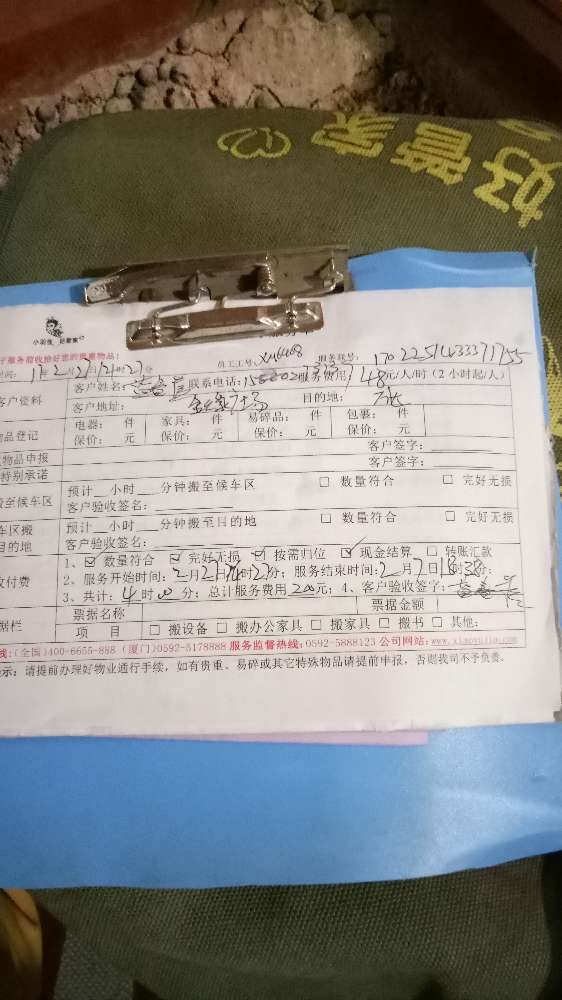 好管家
小羽佳 好管家
服务前收拾好您的贵重物品!
员工工号: XM6408 服务联号: 17022514333771755
客户资料 客户姓名: 联系电话: 服务费用 48元/人/时(2小时起/人)
客户地址: 目的地:
物品登记 电器: 件 家具: 件 易碎品: 件 包裹: 件
保价: 元 保价: 元 保价: 元 保价: 元
物品申报 客户签字:
特别承诺 客户签字:
搬至候车区 预计__小时__分钟搬至候车区 □ 数量符合 □ 完好无损
客户验收签名:
车区搬 预计__小时__分钟搬至目的地 □ 数量符合 □ 完好无损
目的地 客户验收签名:
收付费 1、☑ 数量符合 ☑ 完好无损 ☑ 按需归位 ☑ 现金结算 □ 转账汇款
2、服务开始时间: 2月2日14时27分; 服务结束时间: 2月2日18时38分;
3、共计: 4时00分; 总计服务费用200元; 4、客户验收签字:
票据栏 票据名称 票据金额
项 目 □ 搬设备 □ 搬办公家具 □ 搬家具 □ 搬书 □ 其他:
线:(全国)400-6655-888 (厦门)0592-5178888 服务监督热线:0592-5888123 公司网站:www.xiaoyujia.com
提示: 请提前办理好物业通行手续, 如有贵重、易碎或其它特殊物品请提前申报, 否则我司不予负责。